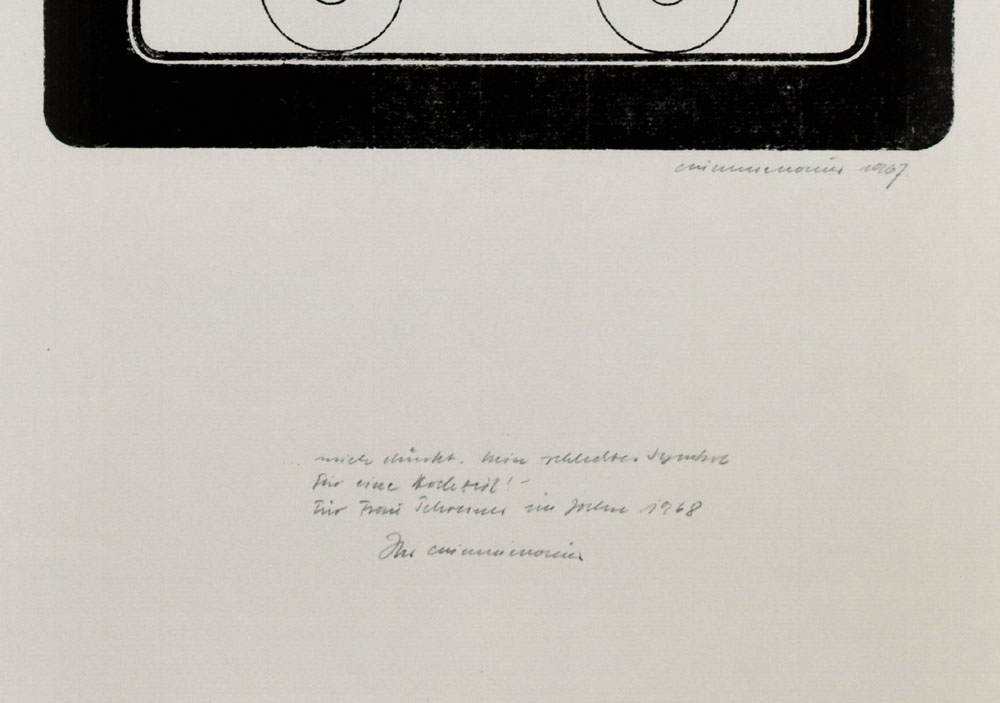 1967
mich dünkt. kein schlechtes Symbol
für eine Hochzeit! –
Für Frau im Jahre 1968
Ihr